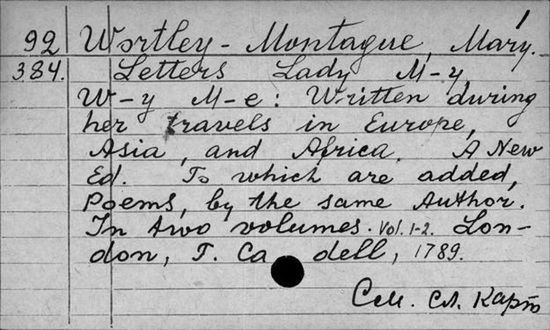 1
92 Wortley-Montague, Mary.
384. Letters Lady M-y
W-y M-e: Written during
her travels in Europe,
Asia, and Africa. A New
Ed. To which are added,
Poems, by the same Author.
In two volumes. Vol. 1-2. Lon-
don, T. Ca dell, 1789.
См. сл. карт